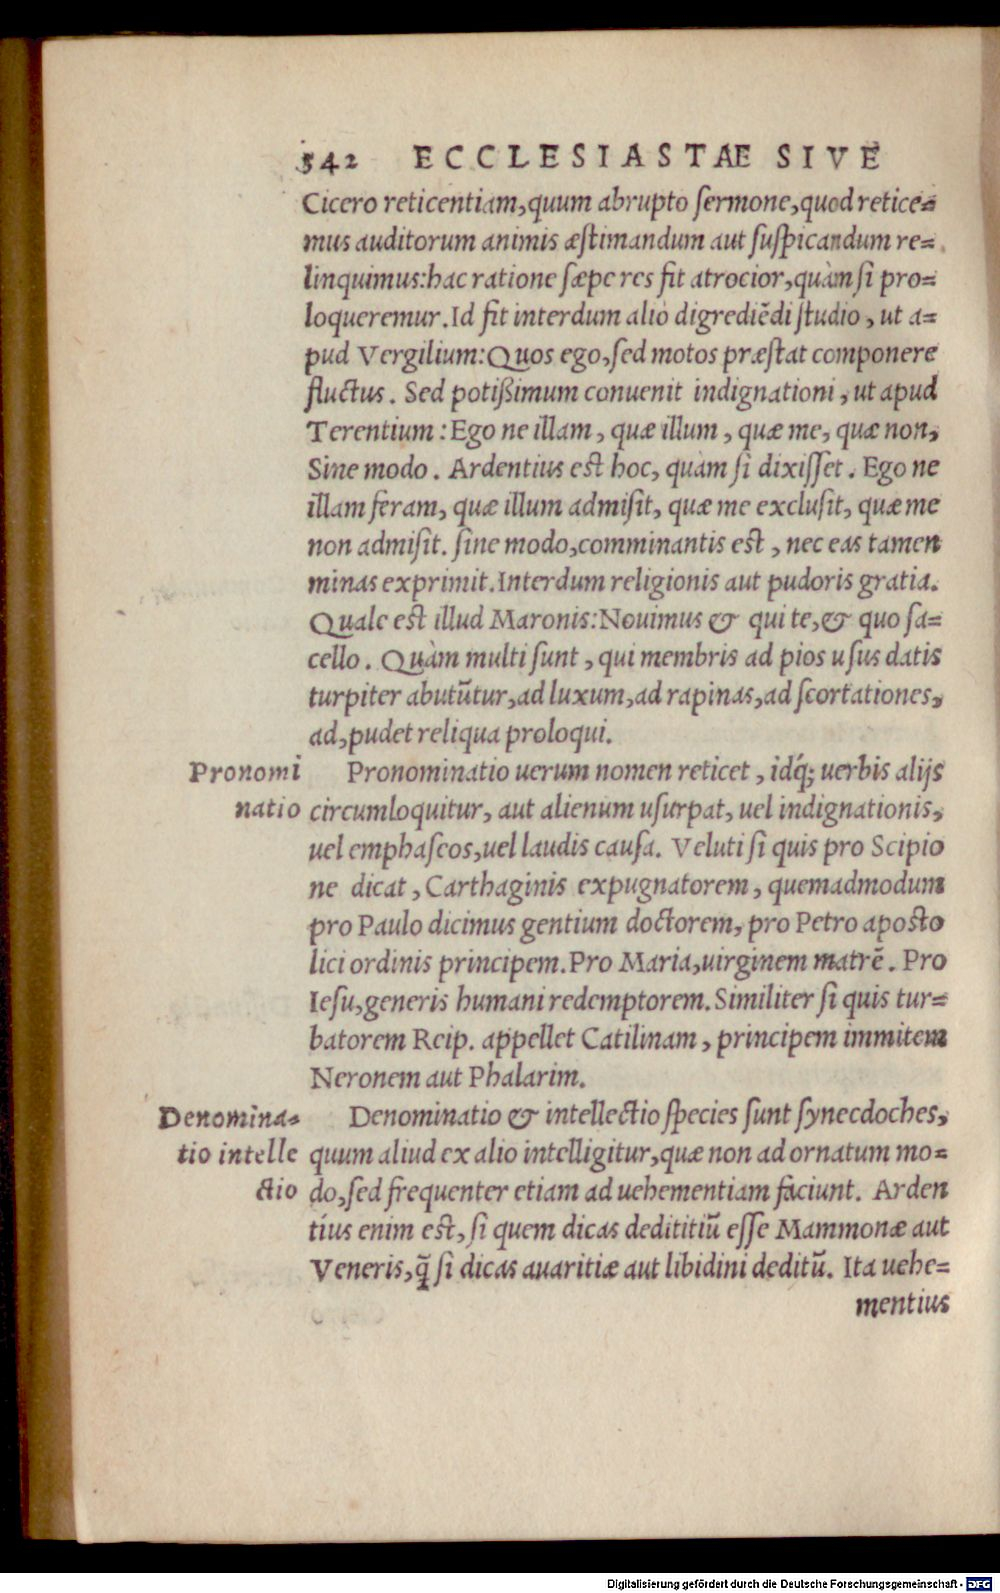 542 ECCLESIASTÆ SIVE
Cicero reticentiam, quum abrupto sermone, quod retice=
mus auditorum animis æstimandum aut suspicandum re=
linquimus: hac ratione sæpe res fit atrocior, quàm si pro=
loqueremur. Id fit interdum alio digrediẽdi studio, ut a=
pud Vergilium: Quos ego, sed motos præstat componere
fluctus. Sed potißimum conuenit indignationi, ut apud
Terentium: Ego ne illam, quæ illum, quæ me, quæ non,
Sine modo. Ardentius est hoc, quàm si dixisset. Ego ne
illam feram, quæ illum admisit, quæ me exclusit, quæ me
non admisit. sine modo, comminantis est, nec eas tamen
minas exprimit. Interdum religionis aut pudoris gratia.
Quale est illud Maronis: Nouimus & qui te, & quo sa=
cello. Quàm multi sunt, qui membris ad pios usus datis
turpiter abutũtur, ad luxum, ad rapinas, ad scortationes,
ad, pudet reliqua proloqui.
Pronomi
natio
Pronominatio uerum nomen reticet, idq́; uerbis alijs
circumloquitur, aut alienum usurpat, uel indignationis,
uel emphaseos, uel laudis causa. Veluti si quis pro Scipio
ne dicat, Carthaginis expugnatorem, quemadmodum
pro Paulo dicimus gentium doctorem, pro Petro aposto
lici ordinis principem. Pro Maria, uirginem matrẽ. Pro
Iesu, generis humani redemptorem. Similiter si quis tur=
batorem Reip. appellet Catilinam, principem immitem
Neronem aut Phalarim.
Denomina=
tio intelle
ctio
Denominatio & intellectio species sunt synecdoches,
quum aliud ex alio intelligitur, quæ non ad ornatum mo=
do, sed frequenter etiam ad uehementiam faciunt. Arden
tius enim est, si quem dicas dedititiũ esse Mammonæ aut
Veneris, q̃ si dicas auaritiæ aut libidini deditũ. Ita uehe=
mentius
Digitalisierung gefördert durch die Deutsche Forschungsgemeinschaft - DFG